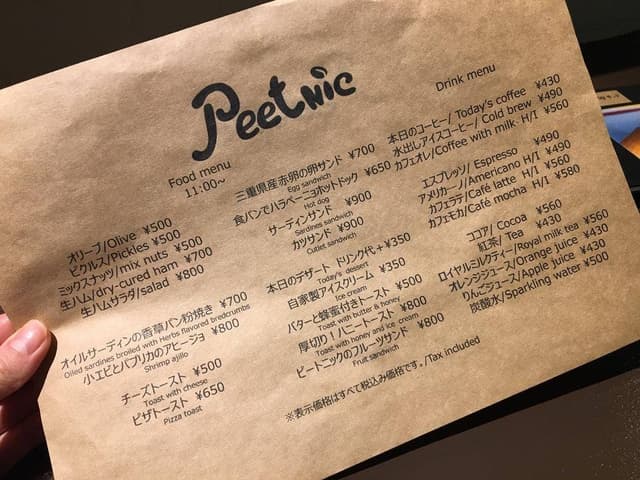 Peetnic
Food menu
11:00~
オリーブ/Olive ¥500
ピクルス/Pickles ¥500
ミックスナッツ/mix nuts ¥500
生ハム/dry-cured ham ¥700
生ハムサラダ/salad ¥800
オイルサーディンの香草パン粉焼き ¥700
Oiled sardines broiled with Herbs flavored breadcrumbs
小エビとパプリカのアヒージョ ¥800
Shrimp ajillo
チーズトースト ¥500
Toast with cheese
ピザトースト ¥650
Pizza toast
三重県産赤卵の卵サンド ¥700
Egg sandwich
食パンでハラペーニョホットドック ¥650
Hot dog
サーディンサンド ¥900
Sardines sandwich
カツサンド ¥900
Cutlet sandwich
本日のデザート ドリンク代+¥350
Today's dessert
自家製アイスクリーム ¥350
Ice cream
バターと蜂蜜付きトースト ¥500
Toast with butter & honey
厚切り!ハニートースト ¥800
Toast with honey and ice cream
ピートニックのフルーツサンド ¥800
Fruit sandwich
Drink menu
本日のコーヒー/ Today's coffee ¥430
水出しアイスコーヒー/ Cold brew ¥490
カフェオレ/Coffee with milk H/I ¥560
エスプレッソ/ Espresso ¥490
アメリカーノ/Americano H/I ¥490
カフェラテ/Café latte H/I ¥560
カフェモカ/Café mocha H/I ¥580
ココア/ Cocoa ¥560
紅茶/ Tea ¥430
ロイヤルミルクティー/Royal milk tea ¥560
オレンジジュース/Orange juice ¥430
りんごジュース/Apple juice ¥430
炭酸水/Sparkling water ¥500
※表示価格はすべて税込み価格です。/Tax included